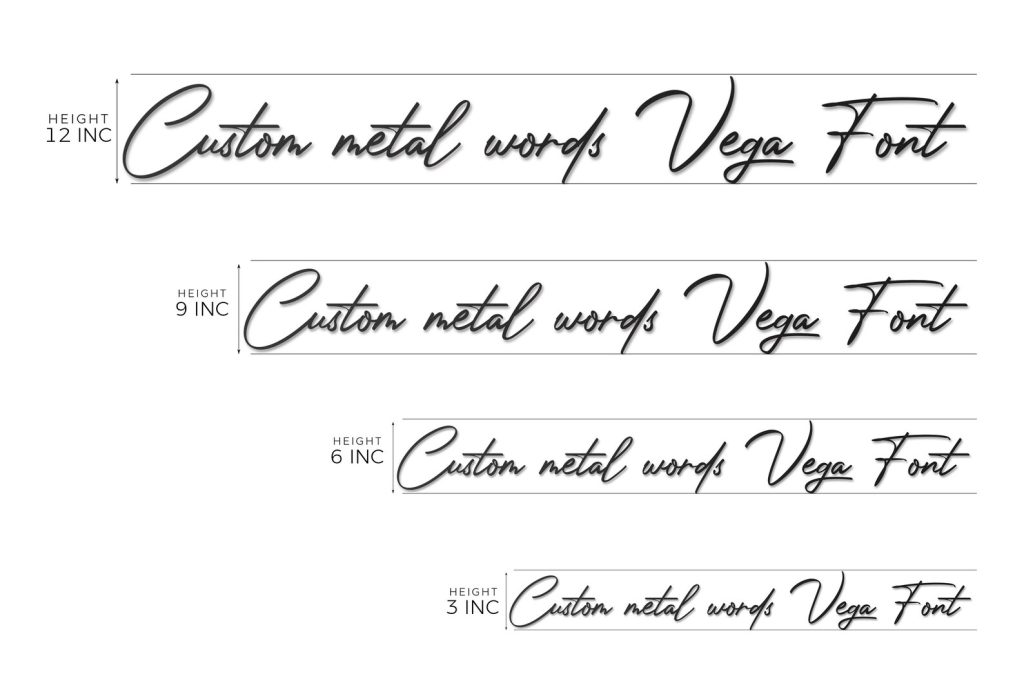 HEIGHT
12 INC
Custom metal words Vega Font
HEIGHT
9 INC
Custom metal words Vega Font
HEIGHT
6 INC
Custom metal words Vega Font
HEIGHT
3 INC
Custom metal words Vega Font